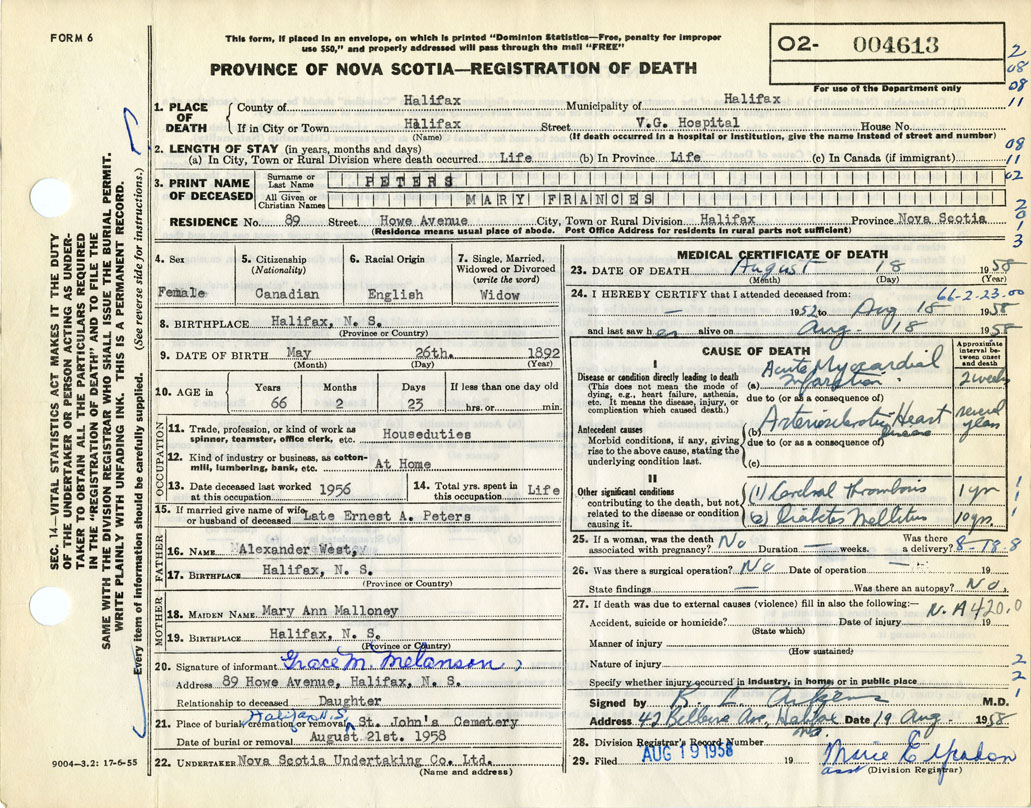 FORM 6
This form, if placed in an envelope, on which is printed "Dominion Statistics—Free, penalty for improper
use $50," and properly addressed will pass through the mail "FREE"
PROVINCE OF NOVA SCOTIA—REGISTRATION OF DEATH
O2- 004613
For use of the Department only
2
08
08
11
08
11
02
2
0
1
3
SEC. 14—VITAL STATISTICS ACT MAKES IT THE DUTY
OF THE UNDERTAKER OR PERSON ACTING AS UNDER-
TAKER TO OBTAIN ALL THE PARTICULARS REQUIRED
IN THE "REGISTRATION OF DEATH" AND TO FILE THE
SAME WITH THE DIVISION REGISTRAR WHO SHALL ISSUE THE BURIAL PERMIT.
WRITE PLAINLY WITH UNFADING INK. THIS IS A PERMANENT RECORD.
Every item of information should be carefully supplied. (See reverse side for instructions.)
1. PLACE OF DEATH
County of Halifax Municipality of Halifax
If in City or Town Halifax Street V.G. Hospital House No.
(Name) (If death occurred in a hospital or institution, give the name instead of street and number)
2. LENGTH OF STAY (in years, months and days)
(a) In City, Town or Rural Division where death occurred Life (b) In Province Life (c) In Canada (if immigrant)
3. PRINT NAME OF DECEASED
Surname or Last Name PETERS
All Given or Christian Names MARY FRANCES
RESIDENCE No. 89 Street Howe Avenue City, Town or Rural Division Halifax Province Nova Scotia
(Residence means usual place of abode. Post Office Address for residents in rural parts not sufficient)
4. Sex
Female
5. Citizenship
(Nationality)
Canadian
6. Racial Origin
English
7. Single, Married,
Widowed or Divorced
(write the word)
Widow
8. BIRTHPLACE Halifax, N. S.
(Province or Country)
9. DATE OF BIRTH May 26th. 1892
(Month) (Day) (Year)
10. AGE in
Years Months Days If less than one day old
66 2 23 hrs. or min.
OCCUPATION
11. Trade, profession or kind of work as
spinner, teamster, office clerk, etc. Houseduties
12. Kind of industry or business, as cotton-
mill, lumbering, bank, etc. At Home
13. Date deceased last worked
at this occupation 1956
14. Total yrs. spent in
this occupation Life
15. If married give name of wife
or husband of deceased Late Ernest A. Peters
FATHER
16. NAME Alexander West,
17. BIRTHPLACE Halifax, N. S.
(Province or Country)
MOTHER
18. MAIDEN NAME Mary Ann Malloney
19. BIRTHPLACE Halifax, N. S.
(Province or Country)
20. Signature of informant Grace M. Melanson
Address 89 Howe Avenue, Halifax, N. S.
Relationship to deceased Daughter
21. Place of burial, cremation or removal Halifax N.S. St. John's Cemetery
Date of burial or removal August 21st. 1958
22. UNDERTAKER Nova Scotia Undertaking Co. Ltd.
(Name and address)
9004—3.2: 17-6-55
MEDICAL CERTIFICATE OF DEATH
23. DATE OF DEATH August 18 1958
(Month) (Day) (Year)
66-2-23.00
24. I HEREBY CERTIFY that I attended deceased from:
— 1952 to Aug 18 1958
and last saw her alive on Aug - 18 1958
CAUSE OF DEATH
Approximate interval between onset and death
I
Disease or condition directly leading to death
(This does not mean the mode of
dying, e.g., heart failure, asthenia,
etc. It means the disease, injury, or
complication which caused death.)
(a) Acute Myocardial Infarction 2 weeks
due to (or as a consequence of)
Antecedent causes
Morbid conditions, if any, giving
rise to the above cause, stating the
underlying condition last.
(b) Arteriosclerotic Heart Disease several years
due to (or as a consequence of)
(c)
II
Other significant conditions
contributing to the death, but not
related to the disease or condition
causing it.
(1) Cerebral thrombosis 1 yr
(2) Diabetes Mellitus 10 yrs.
1
1
1
25. If a woman, was the death
associated with pregnancy? No Duration — weeks. Was there
a delivery?
26. Was there a surgical operation? No Date of operation — 19
State findings — Was there an autopsy? No
27. If death was due to external causes (violence) fill in also the following:—
N. A420.0
Accident, suicide or homicide? Date of injury 19
(State which)
Manner of injury
(How sustained)
Nature of injury
Specify whether injury occurred in industry, in home, or in public place
2
2
1
Signed by M.D.
Address 42 Ave, Halifax Date 19 Aug - 1958
28. Division Registrar's Record Number
29. Filed AUG 19 1958 19 Marie
asst (Division Registrar)